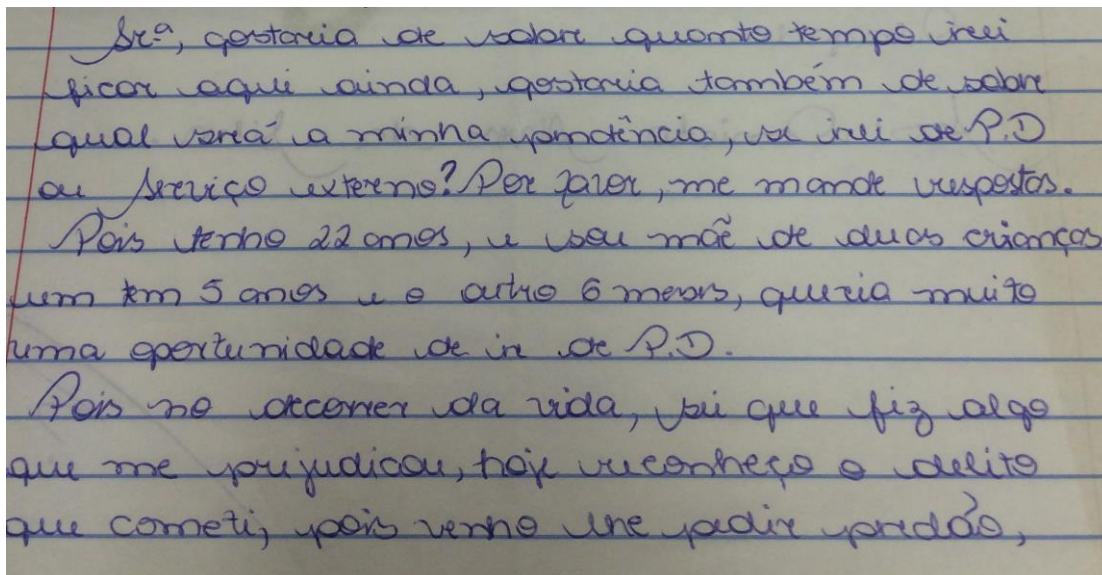 Sr.ª, gostaria de sabre quanto tempo irei
ficar aqui ainda, gostaria também de sabre
qual será a minha pendência, se irei de P.D
ou Serviço externo? Por favor, me mande respostas.
Pois tenho 22 anos, e sou mãe de duas crianças
um tem 5 anos e o outro 6 meses, queria muito
uma oportunidade de ir de P.D.
Pois no decorrer da vida, sei que fiz algo
que me prejudicou, hoje reconheço o delito
que cometi, pois venho lhe pedir perdão,